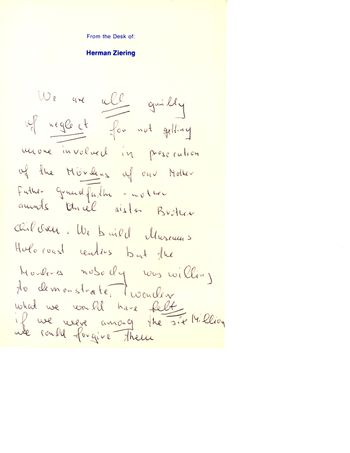 From the Desk of:
Herman Ziering
We are all guilty
of neglect for not getting
more involved in prosecution
of the Mörders of our Mother
Father Grandfather - mother
aunts Uncel sister Brother
children. We build Museums
Holocaust centers but the
Mörderes nobody was willing
to demonstrate, I wonder
what we would have felt
if we were among the six Million
we could forgive them